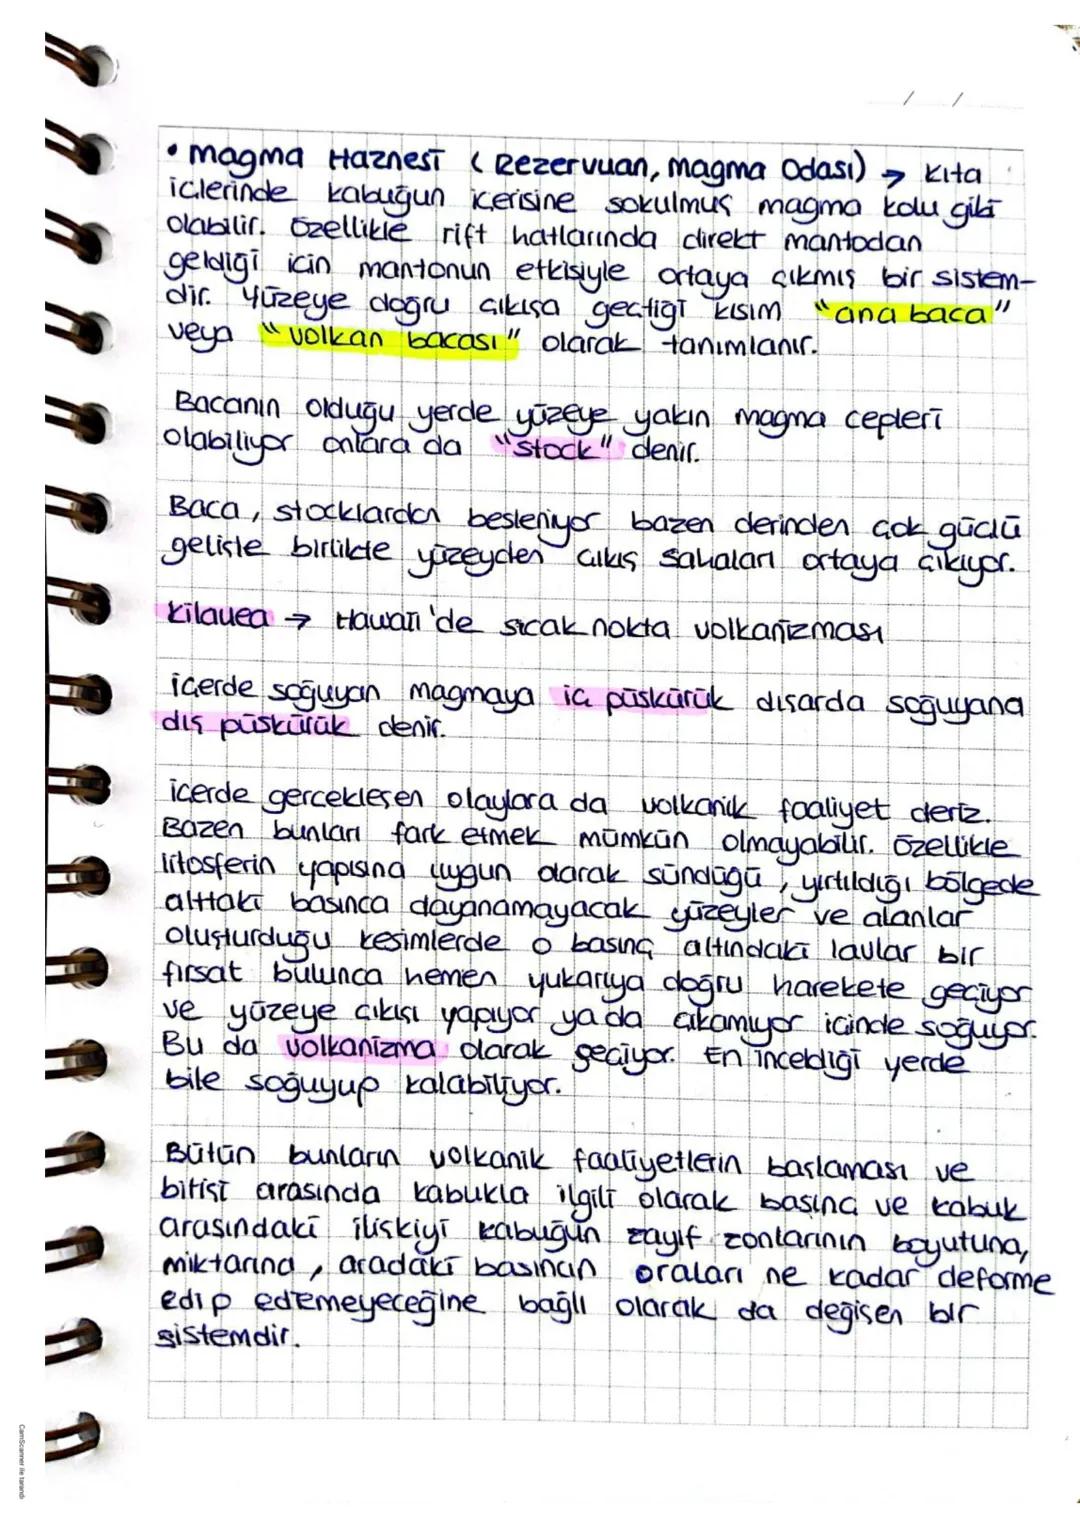 / /
• magma Haznesi (Rezervuarı, magma Odası) → kıta
içlerinde kabuğun içerisine sokulmuş magma kolu gibi
olabilir. Özellikle rift hatlarında direkt mantodan
geldiği için mantonun etkisiyle ortaya çıkmış bir sistem-
dir. Yüzeye doğru çıkışa geçtiği kısım "ana baca"
veya "volkan bacası" olarak tanımlanır.
Bacanın olduğu yerde yüzeye yakın magma cepleri
olabiliyor onlara da "stock" denir.
Baca, stocklardan besleniyor bazen derinden çok güçlü
gelişle birlikte yüzeyden çıkış sahaları ortaya çıkıyor.
Kilauea → Hawaii'de sıcak nokta volkanizması
içerde soğuyan magmaya iç püskürük dışarda soğuyana
dış püskürük denir.
içerde gerçekleşen olaylara da volkanik faaliyet deriz.
Bazen bunları fark etmek mümkün olmayabilir. Özellikle
litosferin yapısına uygun olarak sündüğü, yırtıldığı bölgede
alttaki basınca dayanamayacak yüzeyler ve alanlar
oluşturduğu kesimlerde o basınç altındaki lavlar bir
fırsat bulunca hemen yukarıya doğru harekete geçiyor
ve yüzeye çıkışı yapıyor ya da çıkamıyor içinde soğuyor.
Bu da volkanizma olarak geçiyor. En inceldiği yerde
bile soğuyup kalabiliyor.
Bütün bunların volkanik faaliyetlerin başlaması ve
bitişi arasında kabukla ilgili olarak basınç ve kabuk
arasındaki ilişkiyi kabuğun zayıf zonlarının boyutuna,
miktarına, aradaki basıncın oraları ne kadar deforme
edip edemeyeceğine bağlı olarak da değişen bir
sistemdir.
CamScanner ile tarandı